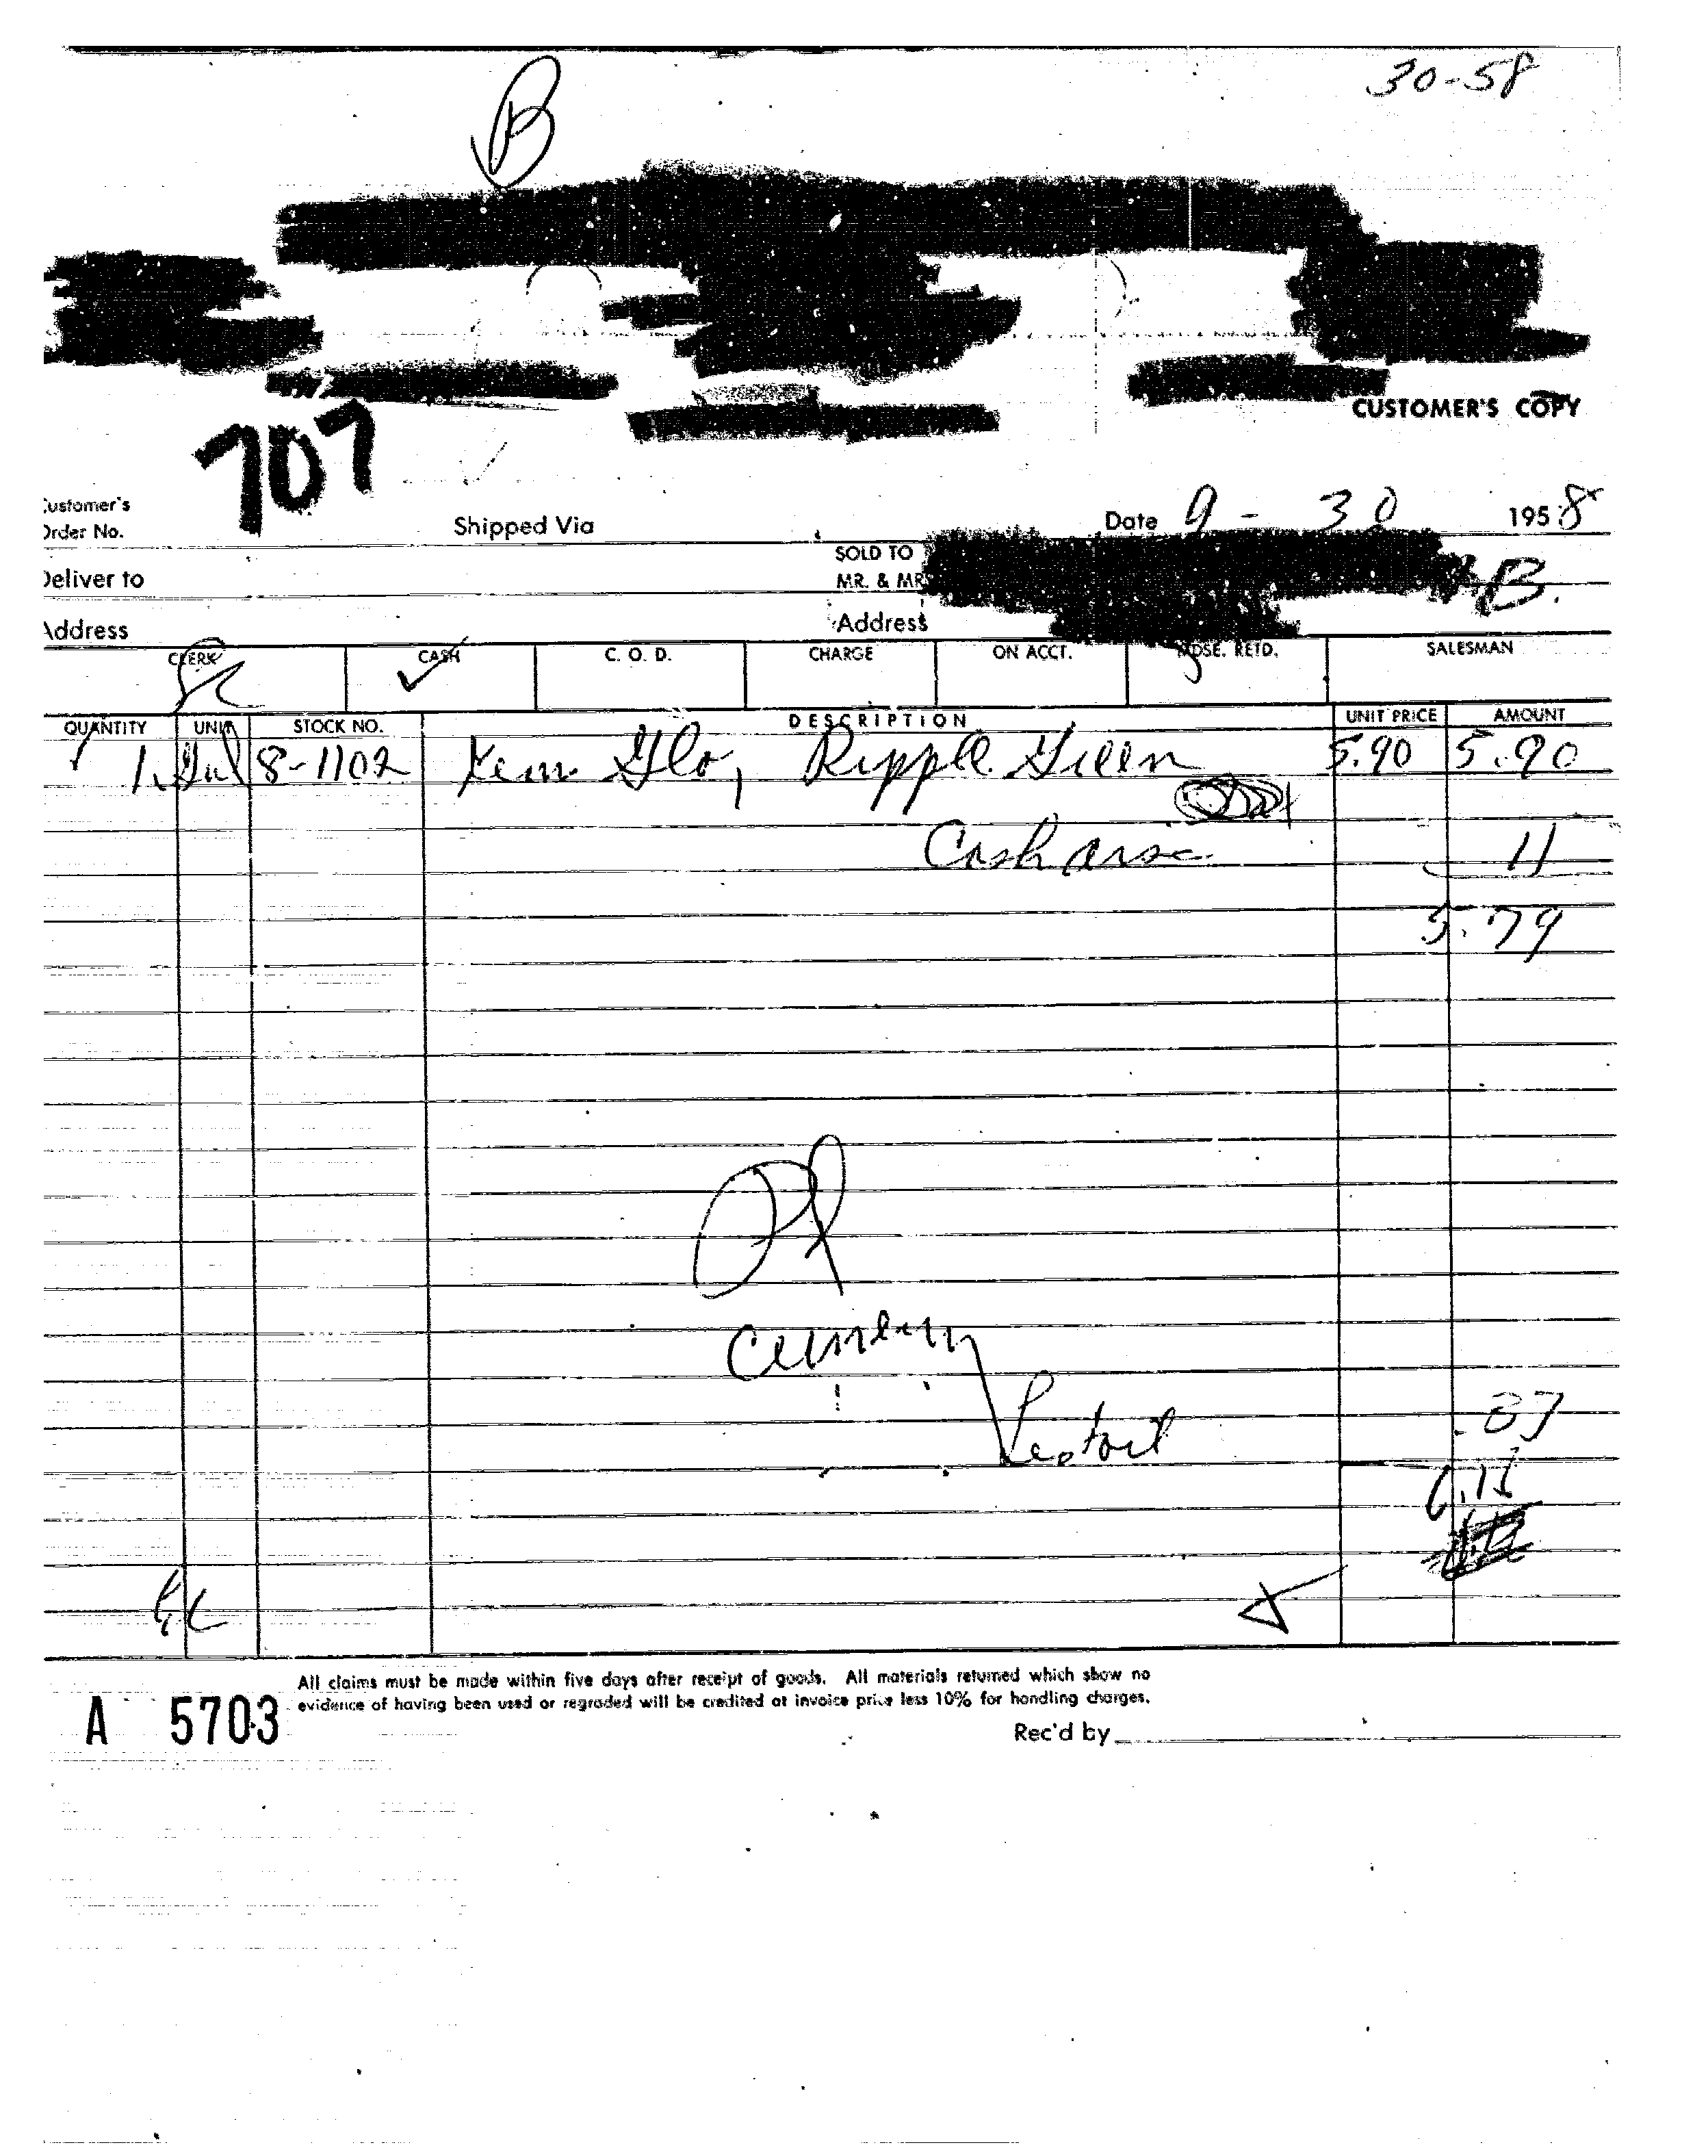 30-58
B
CUSTOMER'S COPY
707
Customer's
Order No.
Shipped Via
Date 9 - 30 1958
SOLD TO
MR. & MR
B.
Deliver to
Address
Address
CLERK CASH C. O. D. CHARGE ON ACCT. MDSE. RETD. SALESMAN
✓
QUANTITY UNIT STOCK NO. DESCRIPTION UNIT PRICE AMOUNT
1 Gal 8-1102 Kem Glo, Ripple Green 5.90 5.90
Cash 11
5.79
Lestoil .37
6.16
A 5703
All claims must be made within five days after receipt of goods. All materials returned which show no
evidence of having been used or regraded will be credited at invoice price less 10% for handling charges.
Rec'd by